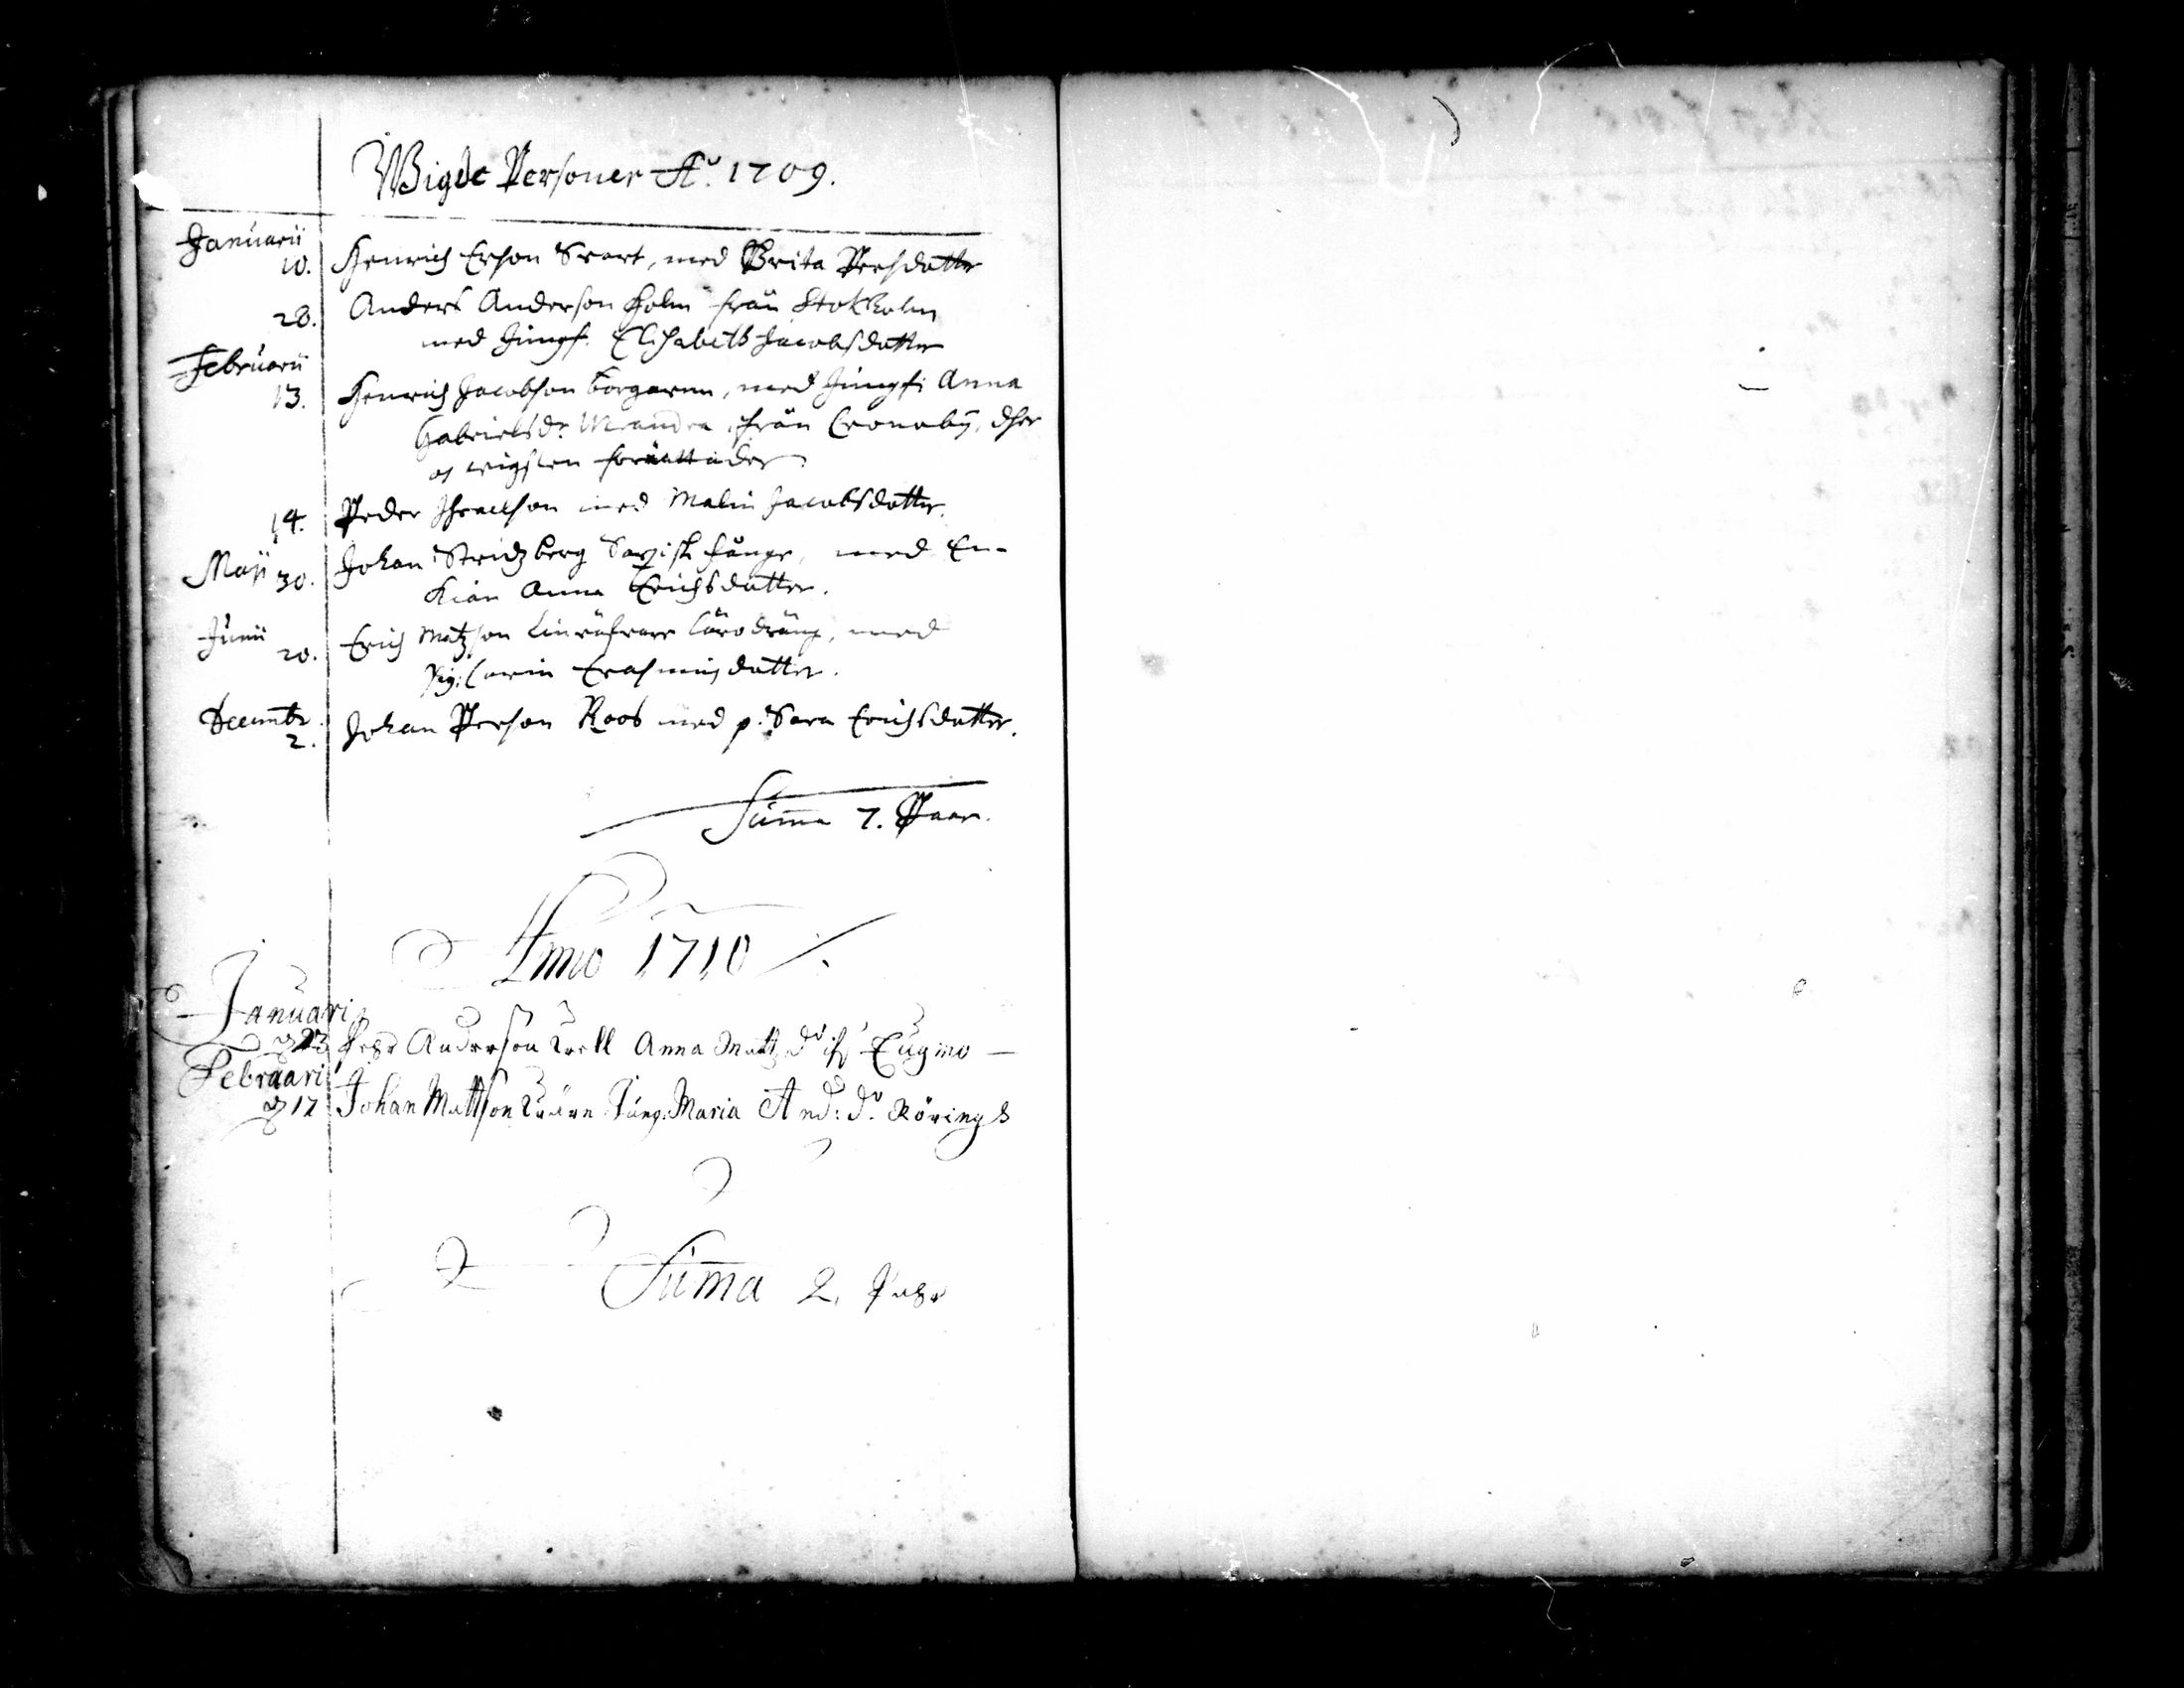 Wigde Personer Aᵒ. 1709.
Januarii
10. Henrich Erson Svart, med Brita Persdotter
28. Anders Anderson Holm från Stokholm
med Jungf. Elisabeth Jacobsdotter
Februarii
13. Henrich Jacobson borgaren, med Jungf: Anna
Gabrielsdr. från Cronoby, dher
os wigslen
14. Peder Israelson med Malin Jacobsdotter.
Maji 30. Johan Stridzberg Saxisk fånge, med En-
kian Anna Erichsdotter.
Junii
20. Erich Matzson med
pig: Carin Erasmusdotter.
Decembr.
2. Johan Person Roos med p. Sara Erichsdotter.
Sum̄a 7. Paar.
Anno 1710
Januari
23 Pehr Anderson Anna Matz dr Eugmo
Februari
17 Johan Mattson Jungf: Maria And: dr. Rörings
Sum̄a 2. Pahr